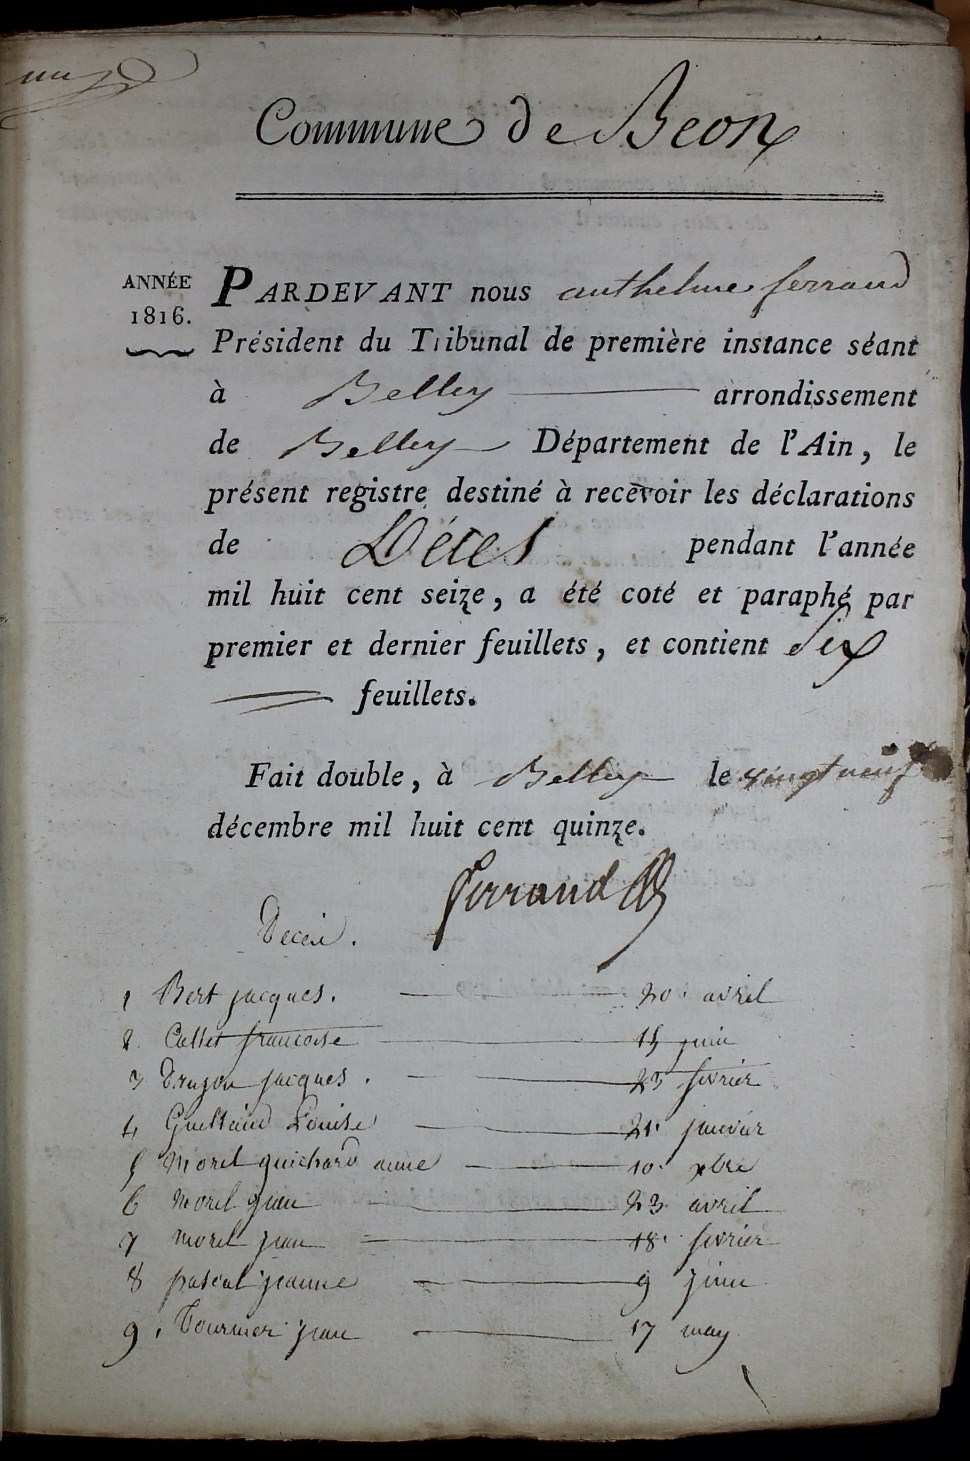 Commune de Beon
ANNÉE
1816.
PARDEVANT nous anthelme ferrand
Président du Tribunal de première instance séant
à Belley arrondissement
de Belley Département de l'Ain, le
présent registre destiné à recevoir les déclarations
de Décès pendant l'année
mil huit cent seize, a été coté et paraphé par
premier et dernier feuillets, et contient Six
feuillets.
Fait double, à Belley le vingt neuf
décembre mil huit cent quinze.
ferrand
Décès.
1 Bert jacques. 20. avril
2 Callet francoise 15 juin
3 Drujon jacques. 23 fevrier
4 Louise 21. janvier
5 Morel guichard anne 10. xbre
6 morel jean 23. avril
7 morel jean 18. fevrier
8 pascal jeanne 9 juin
9. Tournier jean 17 may